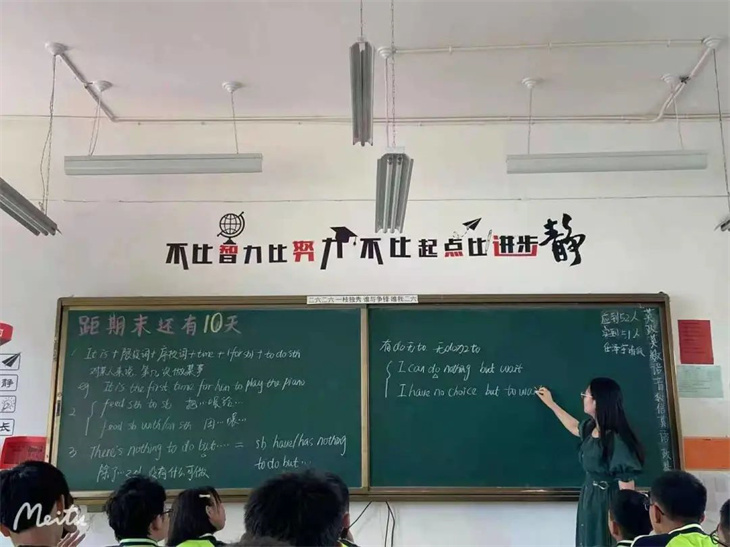 不比智力比努力 不比起点比进步 静
二六二六 一枝独秀 谁与争锋 唯我二六
距期末还有10天
1. It is + 形容词 + 序数词 + time + for sb + to do sth
对某人来说,第几次做某事
eg It is the first time for him to play the piano
2. feed sth to sb 把…喂给…
feed sb with sth 用…喂…
3 There's nothing to do but… = sb have/has nothing
to do but…
除了…之外没有什么可做
有do无to 无do加to
I can do nothing but wait
I have no choice but to wai
应到52人
实到51人
静
长
Meitu